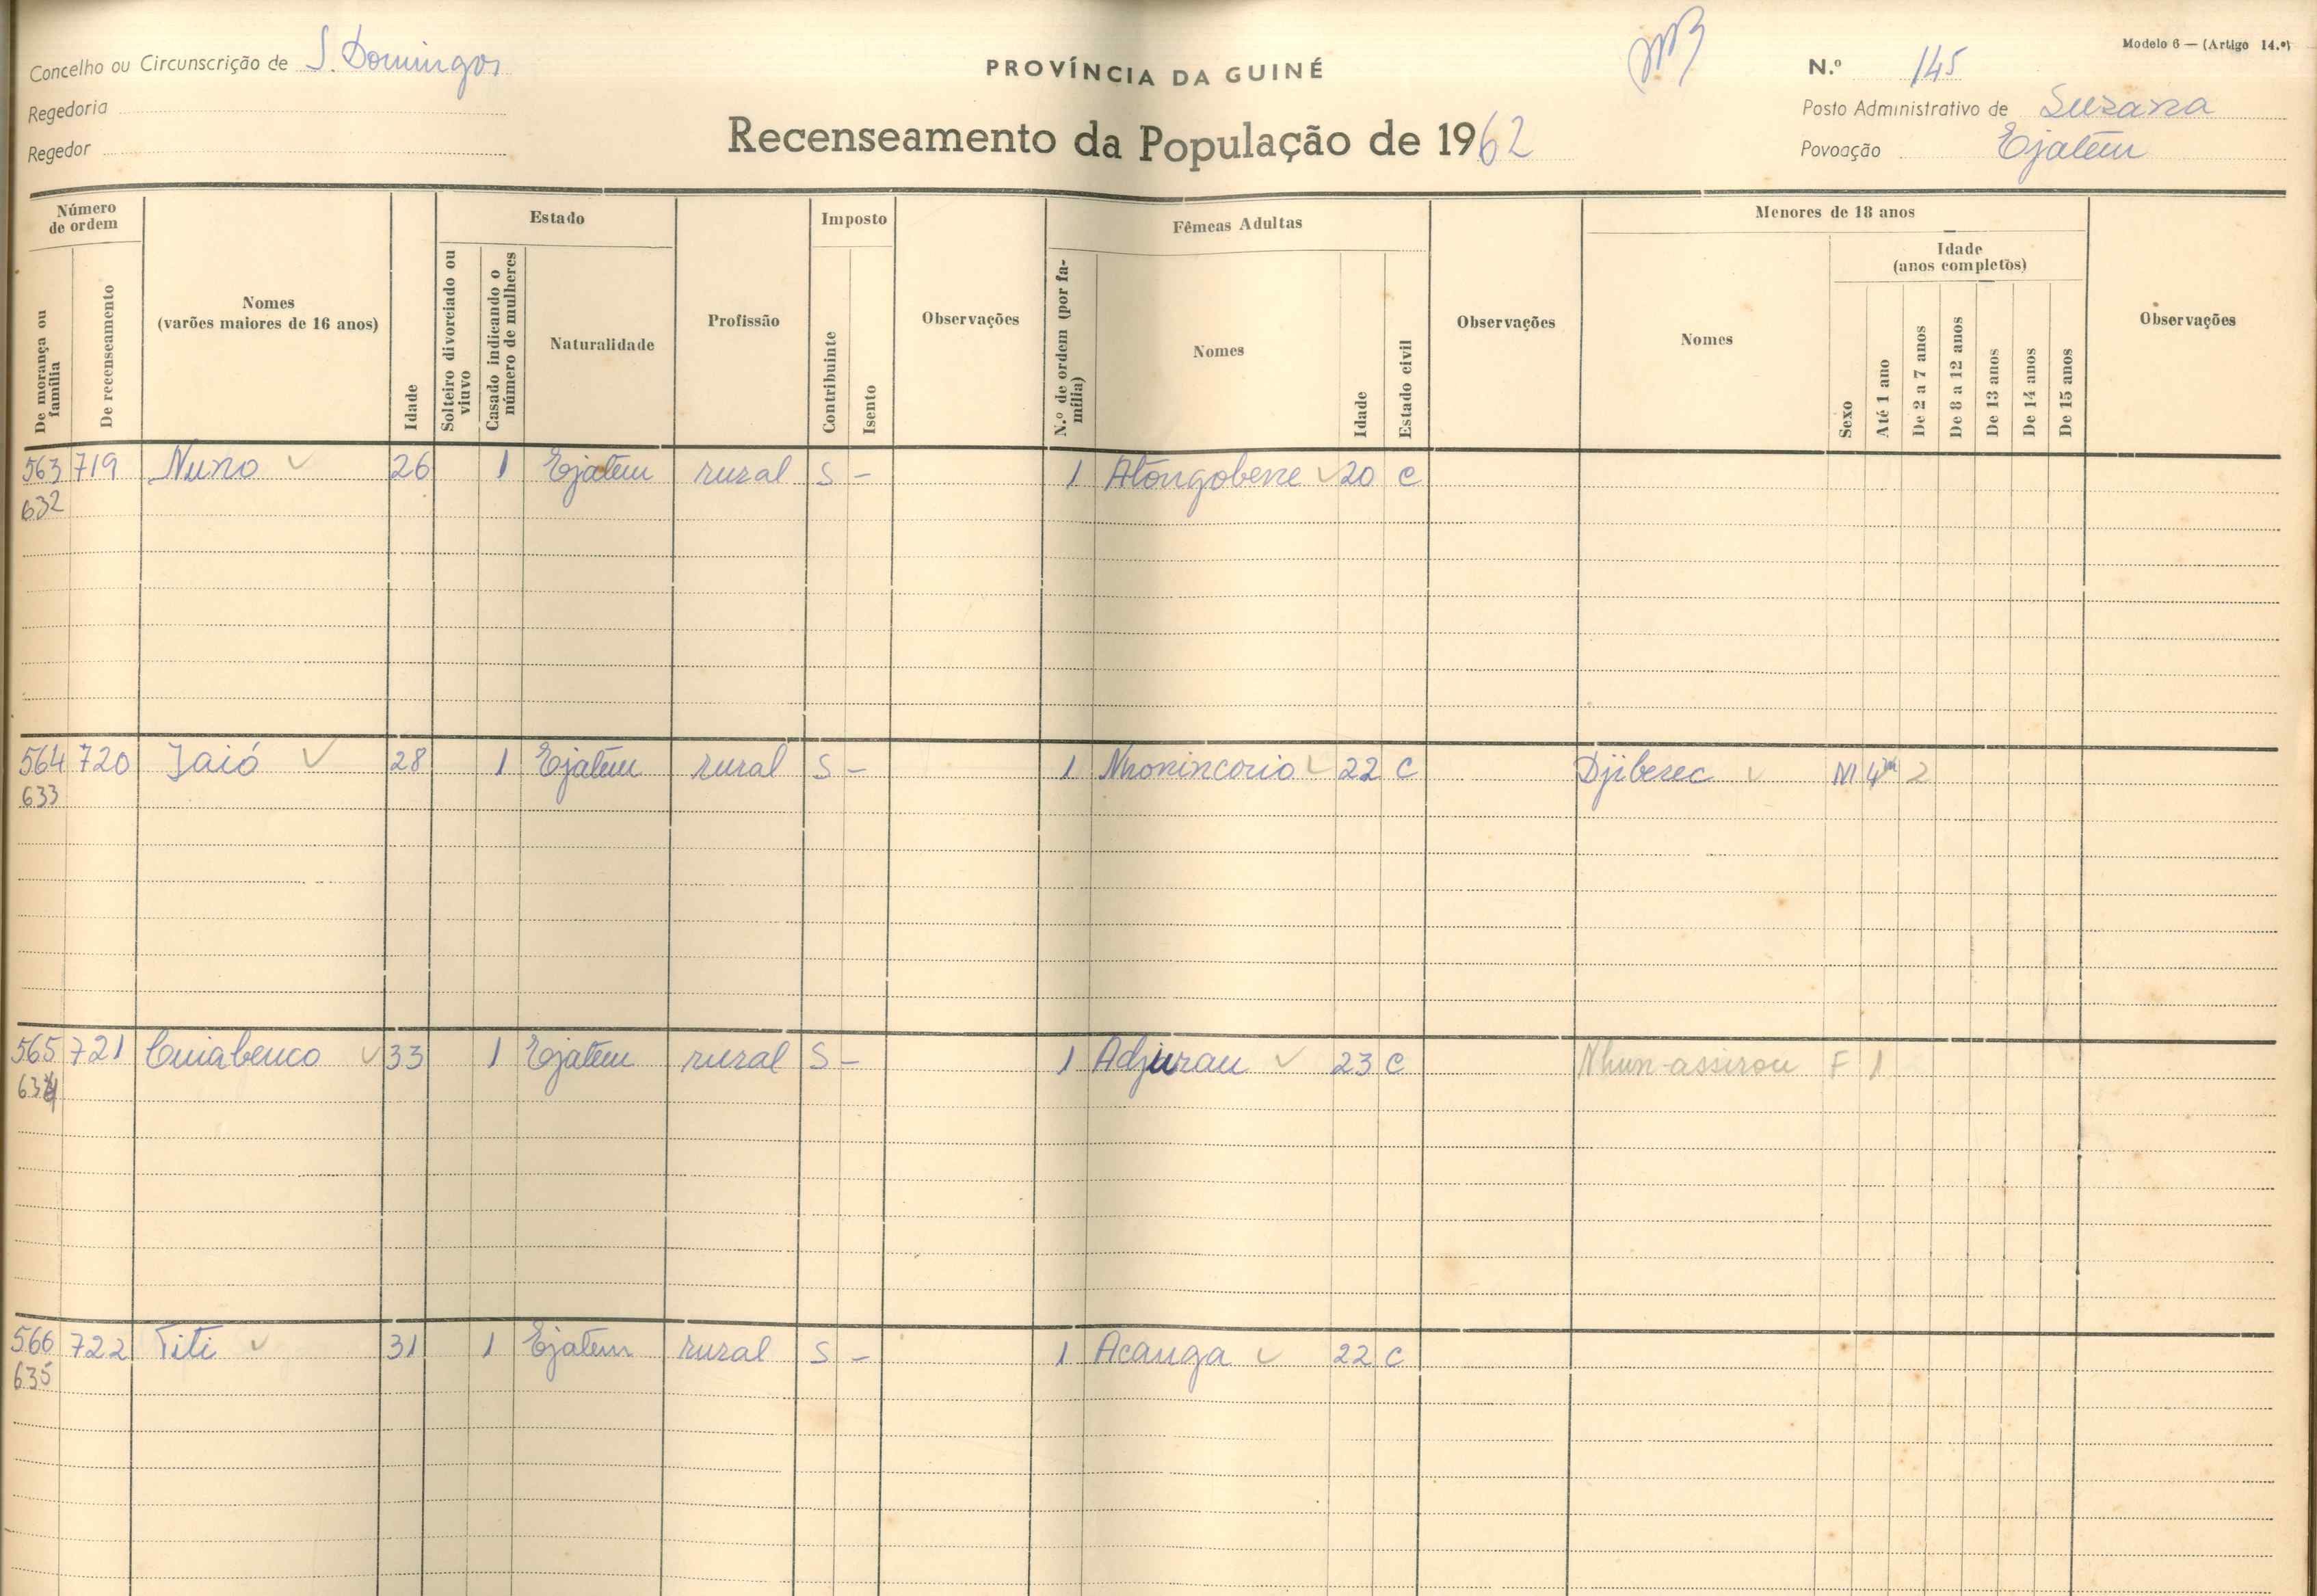 Modelo 6 — (Artigo 14.º)
Concelho ou Circunscrição de S. Domingos
PROVÍNCIA DA GUINÉ
N.º 145
Regedoria
Posto Administrativo de Suzana
Regedor
Recenseamento da População de 1962
Povoação Ejatem
Número de ordem
De morança ou família
De recenseamento
Nomes
(varões maiores de 16 anos)
Idade
Estado
Solteiro divorciado ou viuvo
Casado indicando o número de mulheres
Naturalidade
Profissão
Imposto
Contribuinte
Isento
Observações
Fêmeas Adultas
N.º de ordem (por família)
Nomes
Idade
Estado civil
Observações
Menores de 18 anos
Nomes
Sexo
Idade
(anos completos)
Até 1 ano
De 2 a 7 anos
De 8 a 12 anos
De 13 anos
De 14 anos
De 15 anos
Observações
563 719 Nuno 26 1 Ejatem rural S – 1 Atongobene 20 C
632
564 720 Jaió 28 1 Ejatem rural S – 1 22 C Djiberec M 4m 2
633
565 721 Cuiabenco 33 1 Ejatem rural S – 1 Adjurau 23 C Nhun-assirou F 1
634
566 722 Titi 31 1 Ejatem rural S – 1 Acanga 22 C
635